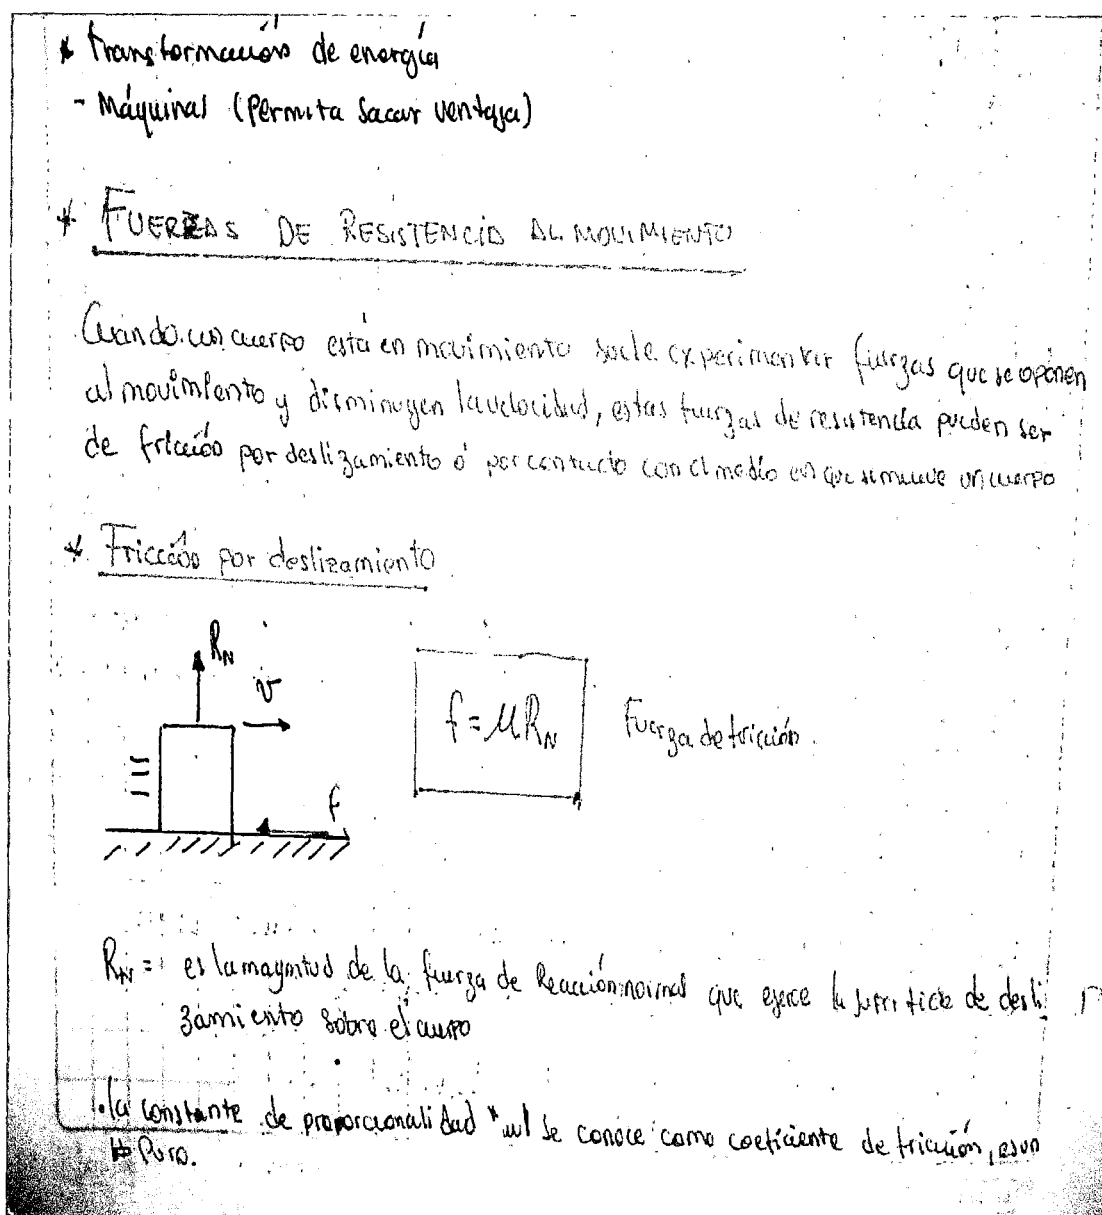 * transformación de energía
- Máquinas (Permita Sacar ventaja)
* FUERZAS DE RESISTENCIA AL MOVIMIENTO
Cuando un cuerpo está en movimiento suele experimentar fuerzas que se oponen
al movimiento y disminuyen la velocidad, estas fuerzas de resistencia pueden ser
de fricción por deslizamiento ó por contacto con el medio en que se mueve un cuerpo
* Fricción por deslizamiento
R_N
v
f = μR_N Fuerza de fricción.
f
R_N = es la magnitud de la fuerza de Reacción normal que ejerce la superficie de desli
zamiento sobre el cuerpo
. la constante de proporcionalidad "μ" se conoce como coeficiente de fricción, es un
# Puro.